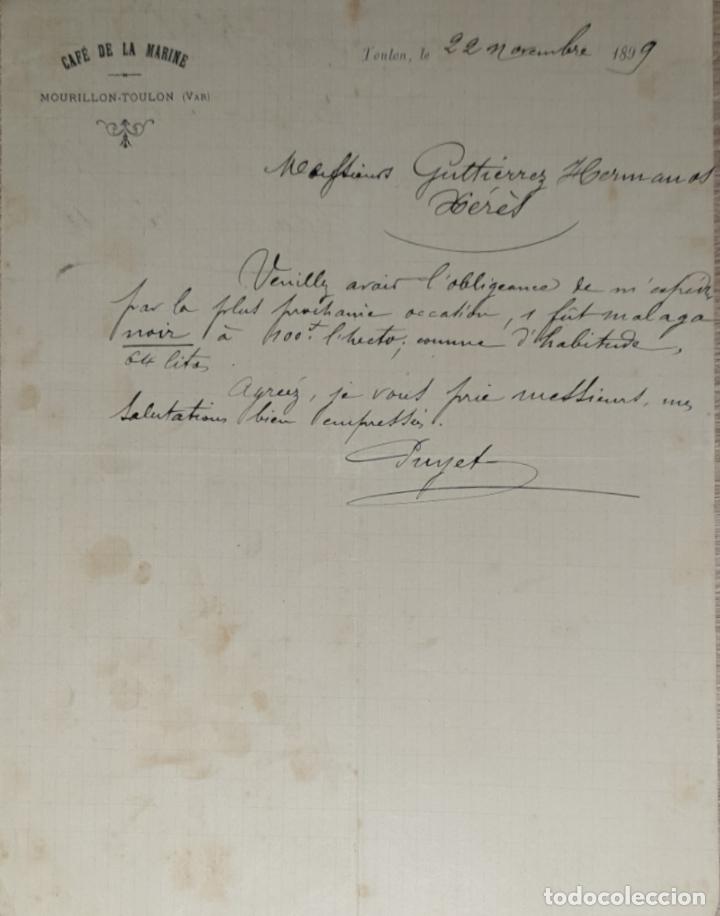 CAFÉ DE LA MARINE
MOURILLON-TOULON (VAR)
Toulon, le 22 novembre 1899
Messieurs Guttiérrez Hermanos
Xérès
Veuillez avoir l'obligeance de m'expédier
par la plus prochaine occation, 1 fut malaga
noir à 100f l'hecto, comme d'habitude,
64 litres.
Agréez, je vous prie messieurs, mes
salutations bien empressées.
Puget
todocoleccion